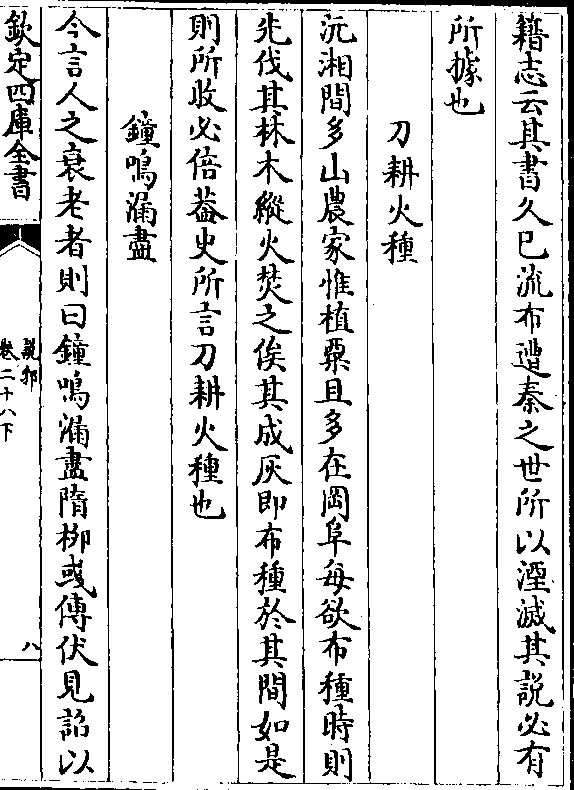 籍志云其書久已流布遭秦之世所以湮滅其說必有
所據也
刀耕火種
沅湘間多山農家惟植粟且多在岡阜每欲布種時則
先伐其林木縱火焚之俟其成灰即布種於其間如是
則所收必倍葢史所言刀耕火種也
鐘鳴漏盡
今言人之衰老者則曰鐘鳴漏盡隋栁彧傳伏見詔以
欽定四庫全書
說郛
卷二十八下
八